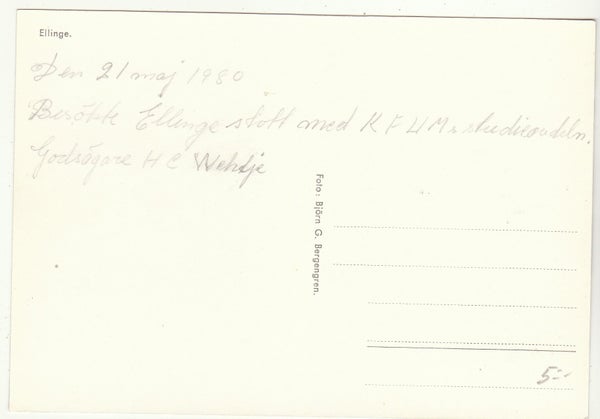 Ellinge.
Den 21 maj 1980
Besökte Ellinge slott med KFUMs studieavdeln.
Godsägare H C Wehtje
Foto: Björn G. Bergengren.
5:-